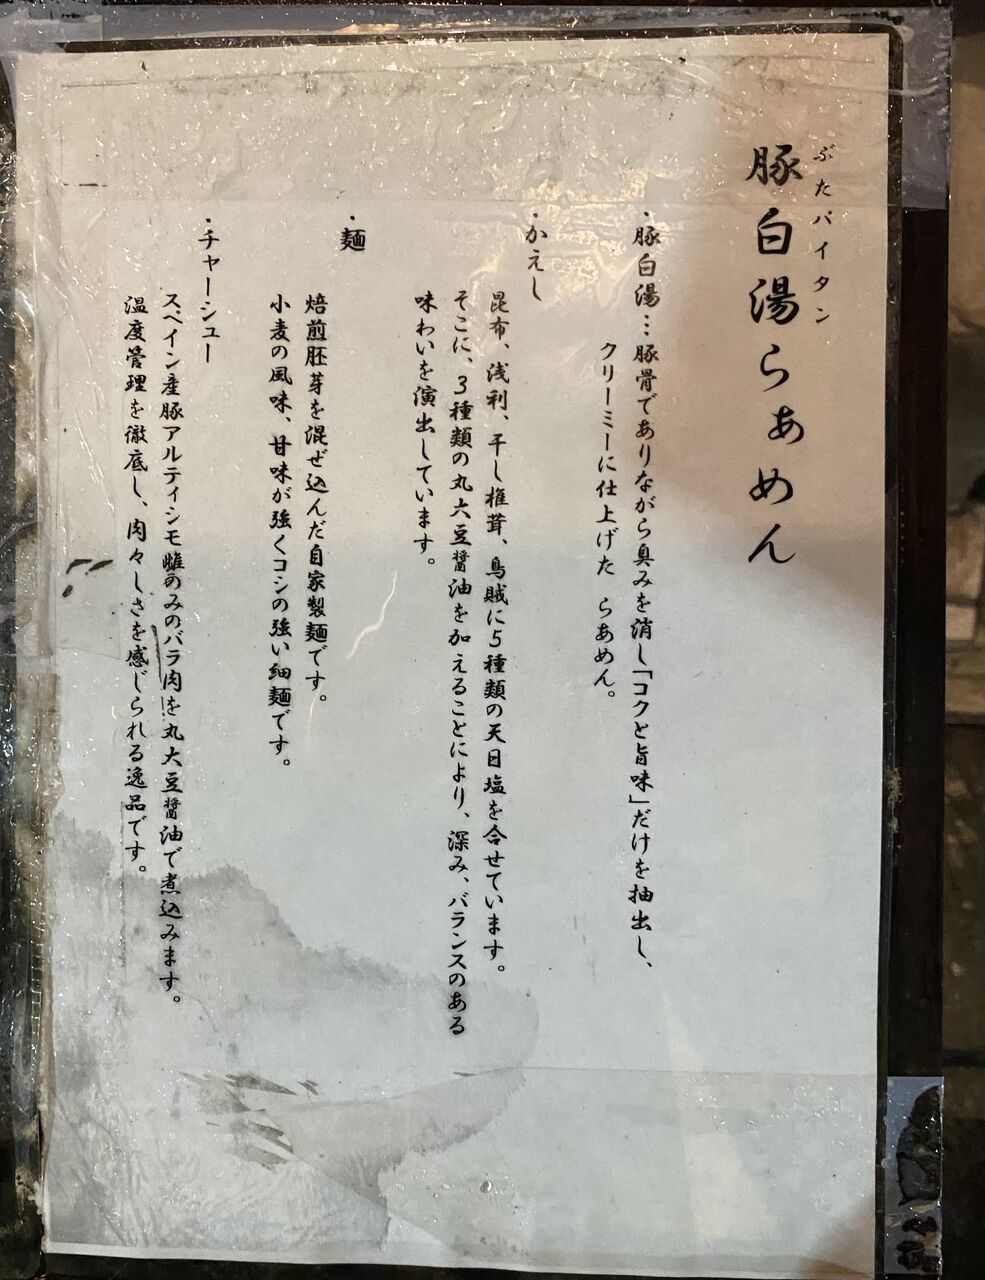 ぶたパイタン
豚白湯らぁめん
・豚白湯…豚骨でありながら臭みを消し「コクと旨味」だけを抽出し、
クリーミーに仕上げた らあめん。
・かえし
昆布、浅利、干し椎茸、烏賊に5種類の天日塩を合せています。
そこに、3種類の丸大豆醤油を加えることにより、深み、バランスのある
味わいを演出しています。
・麺
焙煎胚芽を混ぜ込んだ自家製麺です。
小麦の風味、甘味が強くコシの強い細麺です。
・チャーシュー
スペイン産豚アルティシモ雌のみのバラ肉を丸大豆醤油で煮込みます。
温度管理を徹底し、肉々しさを感じられる逸品です。